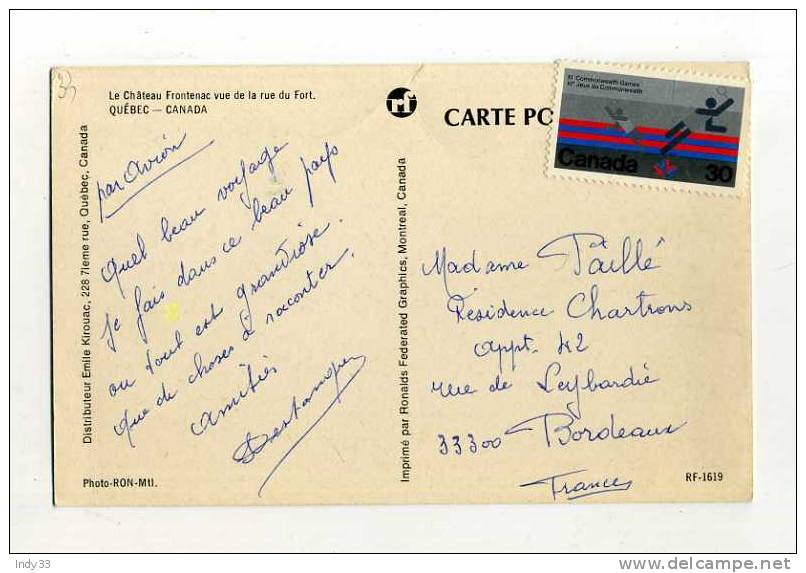 33
Le Château Frontenac vue de la rue du Fort.
QUÉBEC — CANADA
CARTE PO
XI Commonwealth Games
XIes Jeux du Commonwealth
Canada
30
Distributeur Emile Kirouac, 228 7ieme rue, Québec, Canada
par avion
Quel beau voyage
je fais dans ce beau pays
ou tout est grandiose.
que de choses à raconter.
Amitiés
Imprimé par Ronalds Federated Graphics, Montreal, Canada
Madame Taillé
Résidence Chartrons
appt. K2
rue de Leybardie
33300 Bordeaux
France
Photo-RON-Mtl.
RF-1619
Indy33
www.delcampe.net